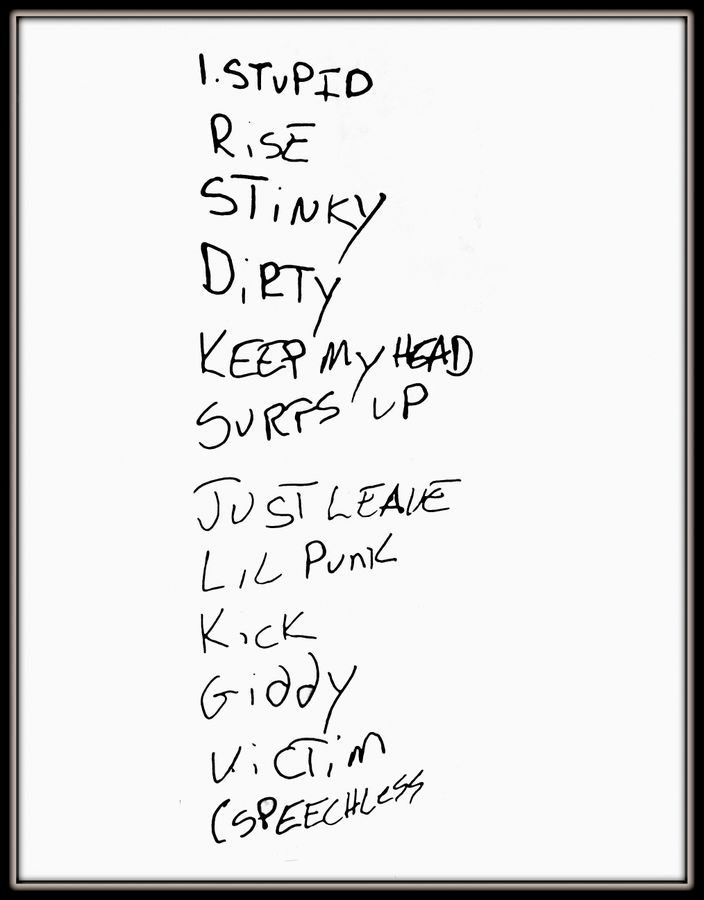 1. STUPID
RiSE
STiNKY
DiRTY
KEEP MY HEAD
SURFS UP
JUST LEAVE
LiL PUNK
KicK
Giddy
ViCTiM
(SPEECHLESS